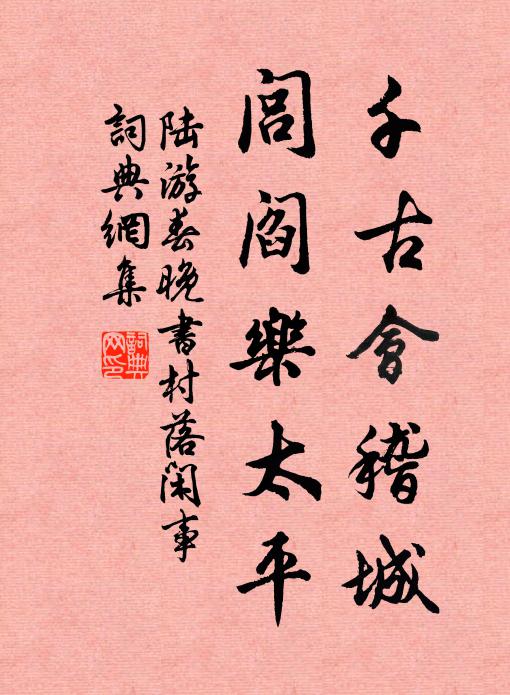 千古會稽城
閭閻樂太平
陸游春晚書村落閑事
詞典網集
詞典網印